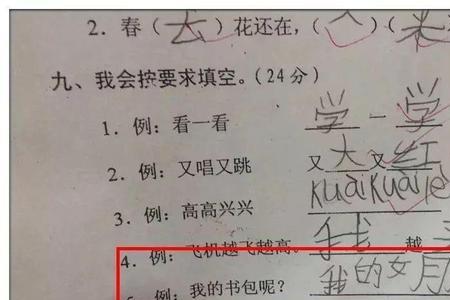 2. 春(去)花还在,(人)(来
九、我会按要求填空。(24分)
1. 例: 看一看 学一学
2. 例: 又唱又跳 又大又红
3. 例: 高高兴兴 kuàikuàile
4. 例: 飞机越飞越高。 我 越
例: 我的书包呢? 我的女朋